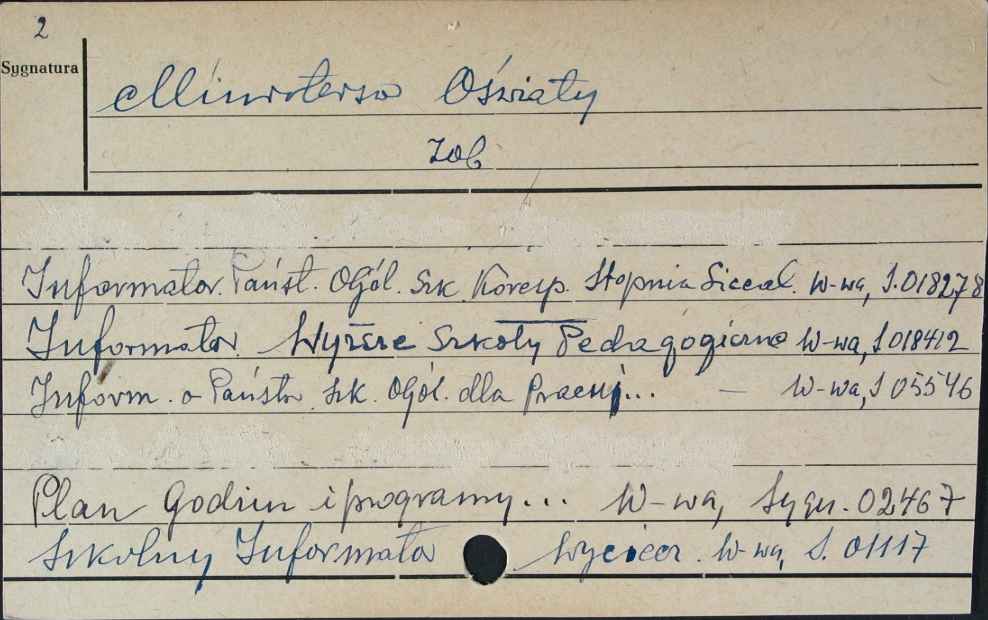 2
Sygnatura
Ministerstwo Oświaty
Zob
Informator. Państ. Ogól. Szk. Koresp. Stopnia Liceal. W-wa, S. 018278
Informator. Wyższe Szkoły Pedagogiczne W-wa, S 018412
Inform. o Państw. Szk. Ogól. dla Pracuj... — W-wa, S 05546
Plan Godzin i programy... W-wa, Sygn. 02467
Szkolny Informator W-wa, S. 01117